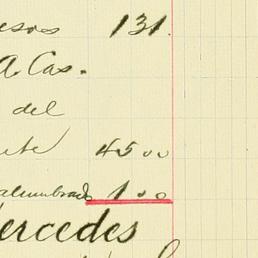 esos 131.
A. Cas.
del
45 00
alumbrado 1 00
ercedes